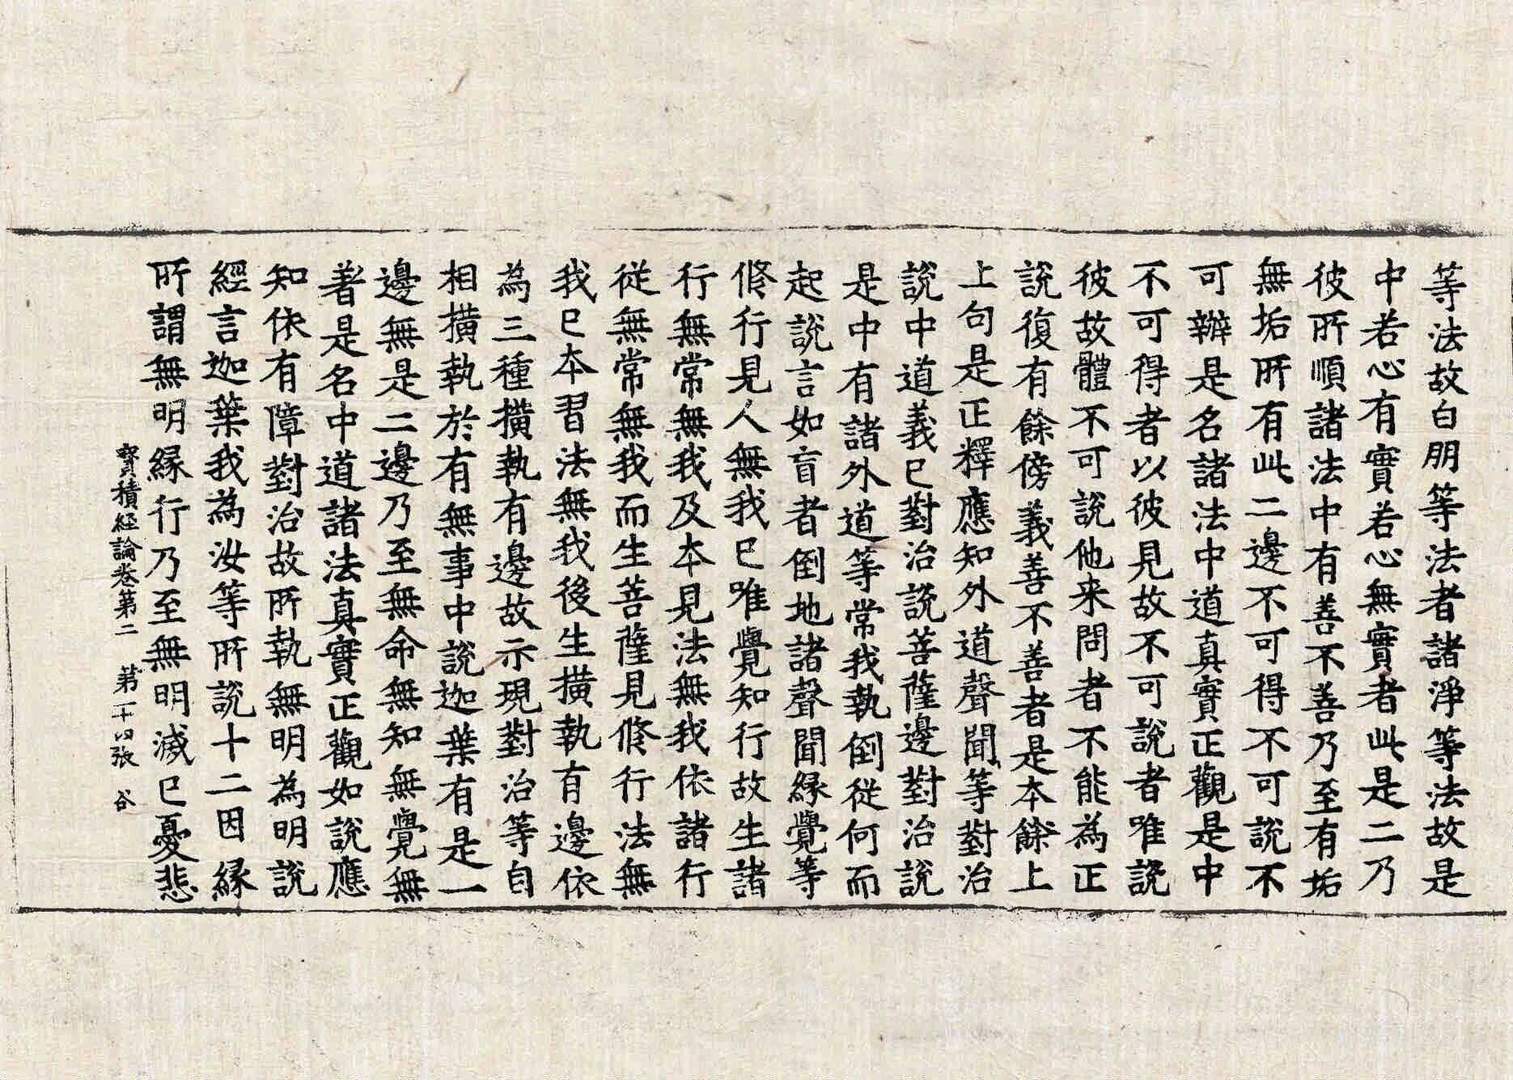 等法故白朋等法者諸淨等法故是
中若心有實若心無實者此是二乃
彼所順諸法中有善不善乃至有垢
無垢所有此二邊不可得不可說不
可辦是名諸法中道真實正觀是中
不可得者以彼見故不可說者唯說
彼故體不可說他来問者不能為正
說復有餘傍義善不善者是本餘上
上句是正釋應知外道聲聞等對治
說中道義已對治說菩薩邊對治說
是中有諸外道等常我執倒從何而
起說言如盲者倒地諸聲聞緣覺等
修行見人無我已唯覺知行故生諸
行無常無我及本見法無我依諸行
從無常無我而生菩薩見修行法無
我已本習法無我後生橫執有邊依
為三種橫執有邊故示現對治等自
相橫執於有無事中說迦葉有是一
邊無是二邊乃至無命無知無覺無
著是名中道諸法真實正觀如說應
知依有障對治故所執無明為明說
經言迦葉我為汝等所說十二因緣
所謂無明緣行乃至無明滅已憂悲
寳積經論卷第二 第二十四张 谷